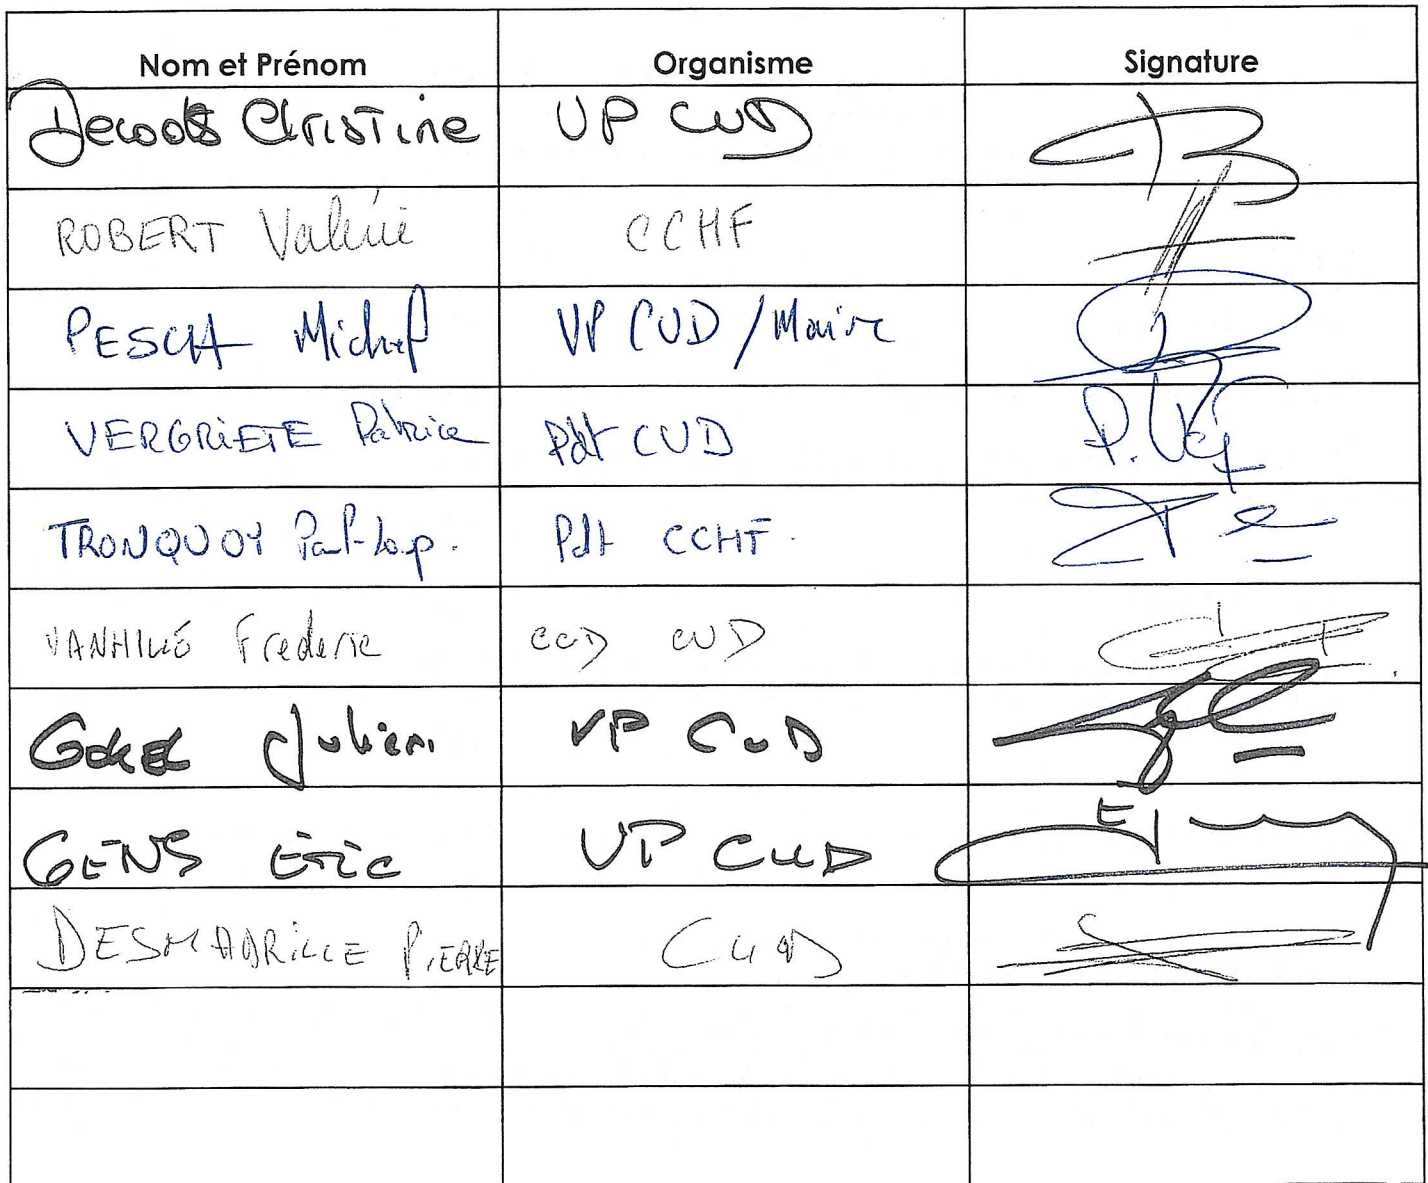 Nom et Prénom Organisme Signature
Decoodt Christine VP CUD
ROBERT Valérie CCHF
PESCH Michel VP CUD / Maire
VERGRIETE Patrice Pdt CUD P. Vg
TRONQUOY Paul-Loup. Pdt CCHF.
VANHILLE Frederic CCD CUD
GOKEL Julien VP CUD
GENS Eric VP CUD
DESMADRILLE PIERRE CUD